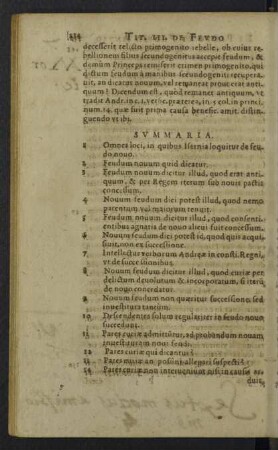 TIT. III. DE FEVDO
decesserit relicto primogenito rebelle, ob cuius re-
bellionem filius secundogenitus accepit feudum, &
demùm Princeps remiserit crimen primogenito, qui
dictum feudum à manibus secundogeniti recupera-
uit, an dicatur nouum, vel remaneat prout erat anti-
quum? Dicendum est, quòd remanet antiquum, vt
tradit Andr. in c. 1. vers. præterea, in 5. col. in princi.
num. 14. quæ sint propria causa benefic. amit. distin-
guendo vt ibi.
SVMMARIA.
1 Omnes loci, in quibus Isernia loquitur de feu-
do nouo.
2 Feudum nouum quid dicatur.
3 Feudum nouum dicitur illud, quod erat anti-
quum, & per Regem iterum sub nouis pactis
concessum.
4 Nouum feudum dici potest illud, quod nemo
parentum vel maiorum tenuit.
5 Feudum nouum dicitur illud, quod consenti-
entibus agnatis de nouo alteri fuit concessum.
6 Nouum feudum dici potest id, quod quis acqui-
suit, non ex successione.
7 Intellectus verborum Andreæ in constit. Regni,
vt de successionibus
8 Nouum feudum dicitur illud, quod curiæ per
delictum deuolutum & incorporatum, & iterũ
de nouo conceditur.
9 Nouum feudum non quæritur successione, sed
inuestitura tantùm.
10 Descendentes solùm regulariter in feudo nouo
succedunt.
11 Pares curiæ admittuntur, ad probandum nouam
inuestituram noui feudi.
12 Pares curiæ qui dicantur
13 Pares curiæ an possint allegari suspecti
14 Pares curiæ non interueniunt nisi in causis ar-
duis,